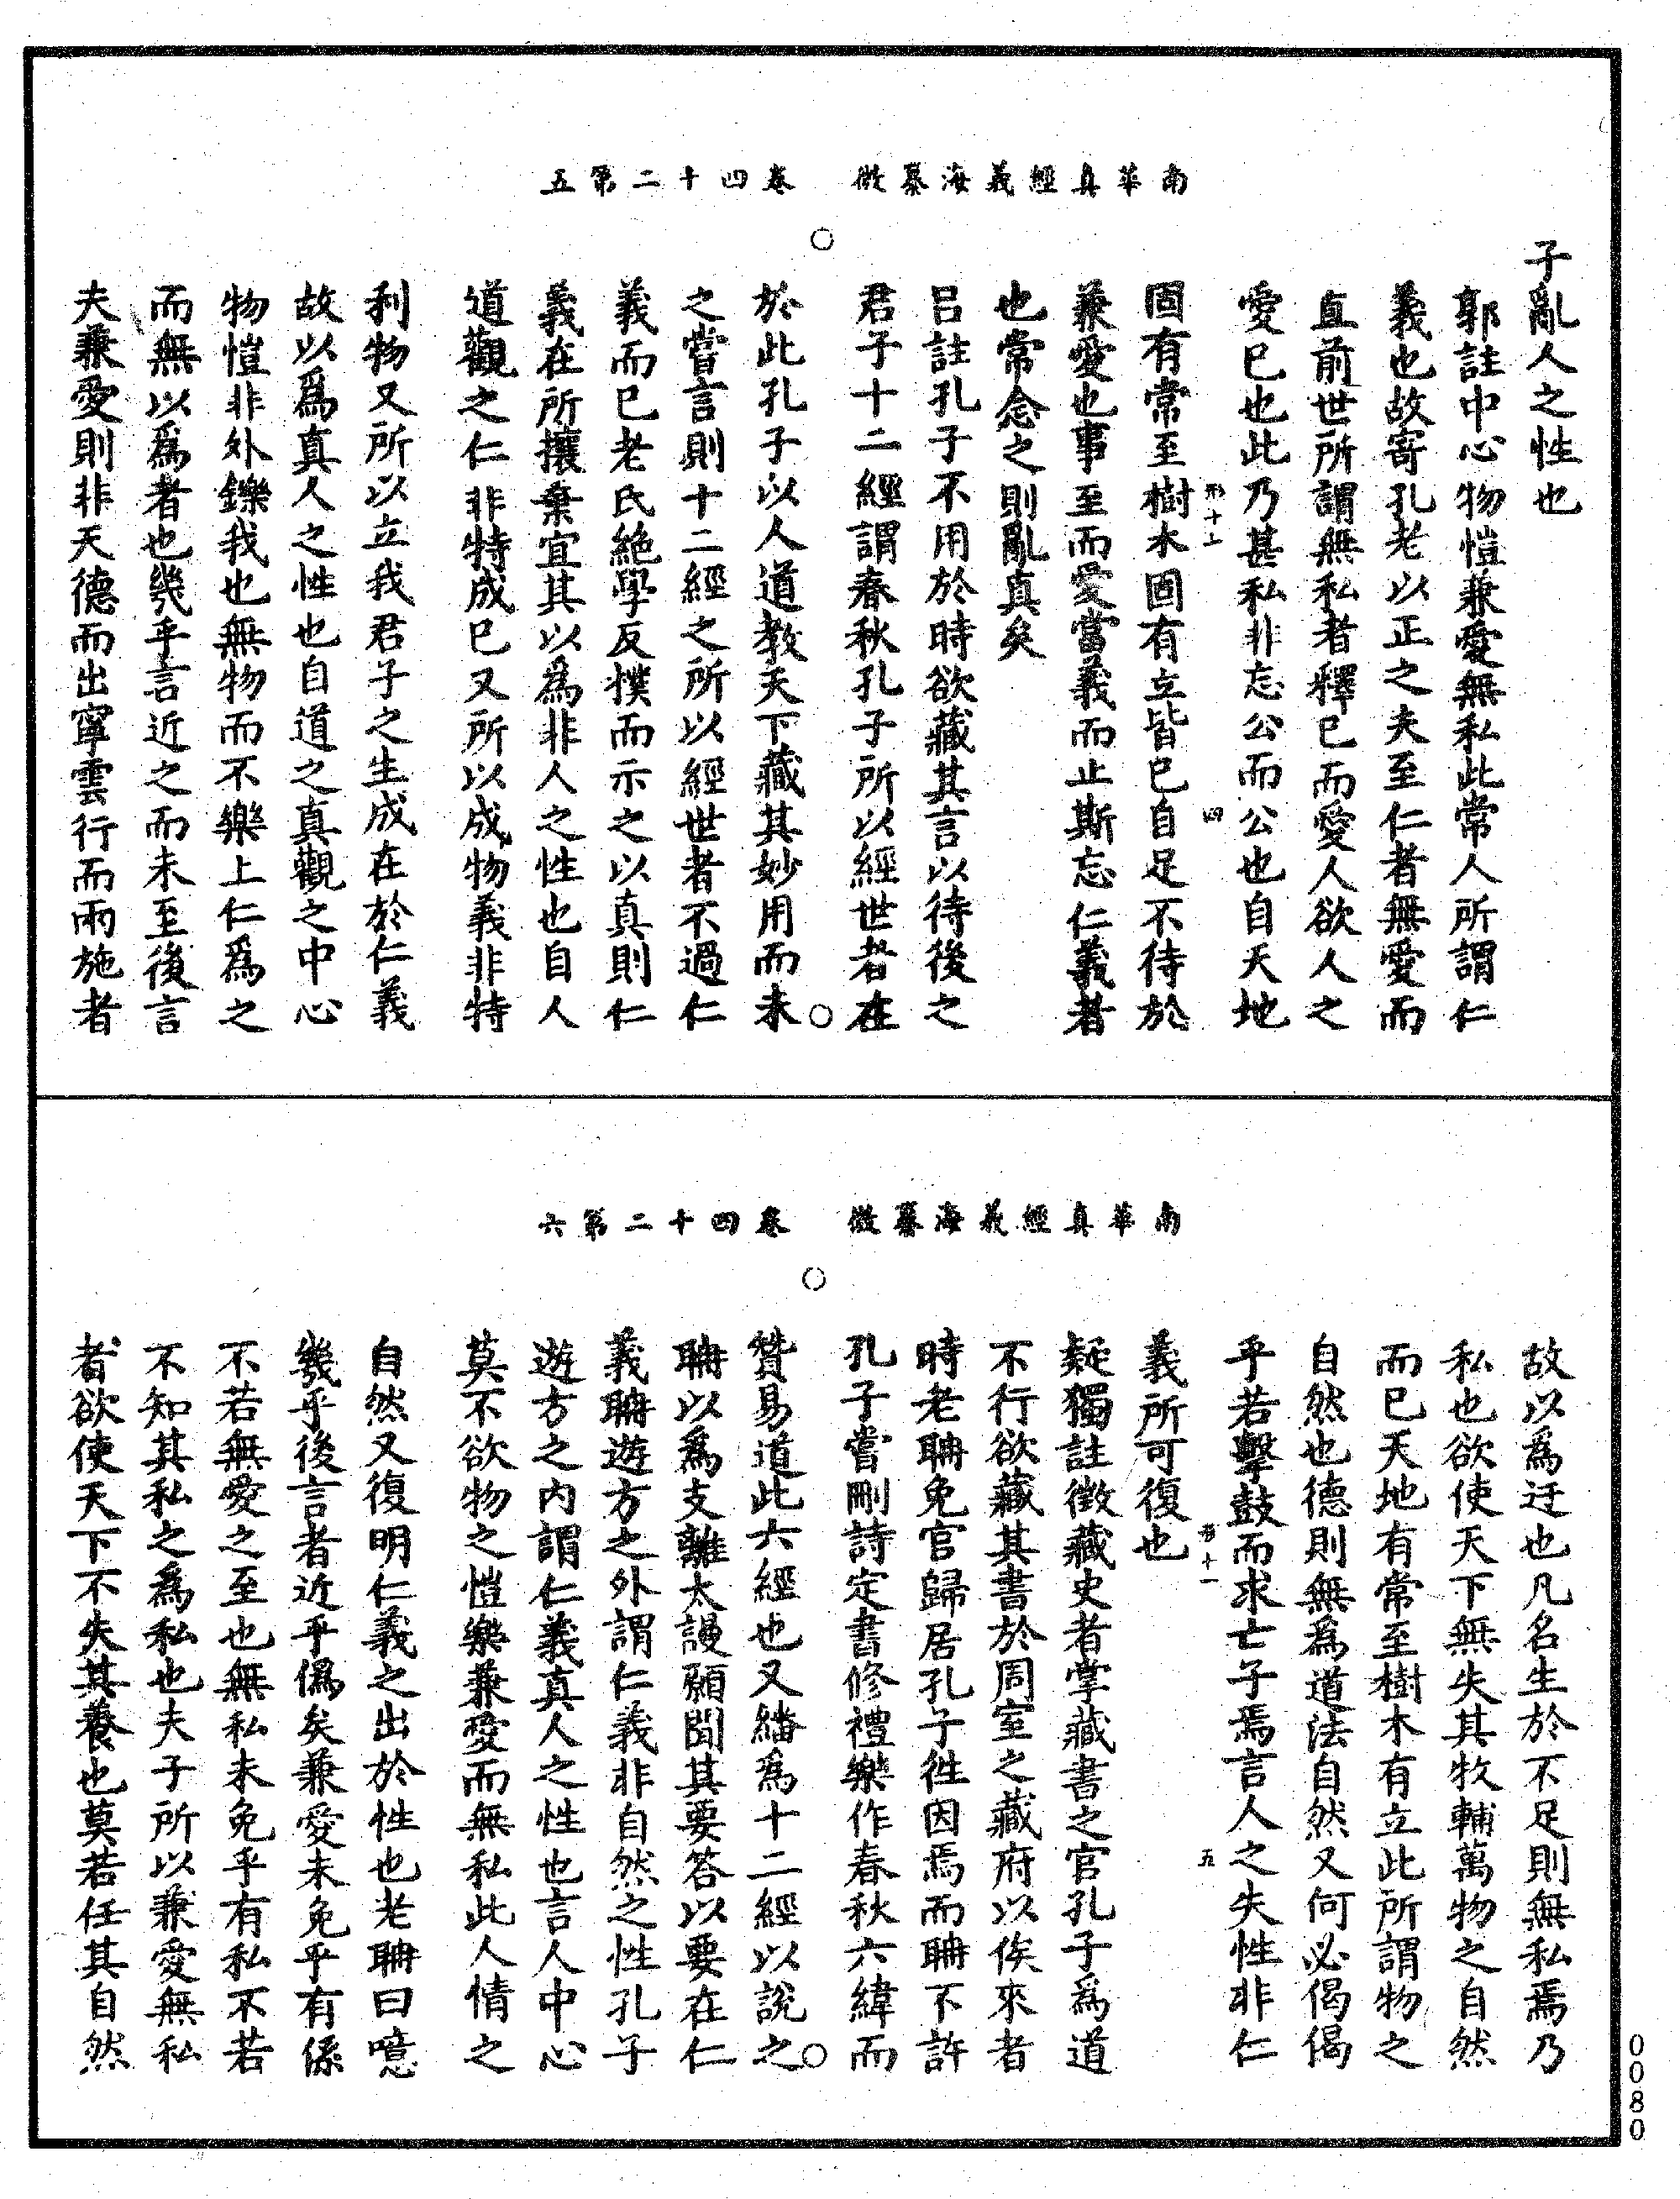 南華真經義海纂微　卷四十二第五
子亂人之性也
郭註中心物愷兼愛無私此常人所謂仁
義也故寄孔老以正之夫至仁者無愛而
直前世所謂無私者釋己而愛人欲人之
愛已也此乃甚私非忘公而公也自天地
形十一
四
固有常至樹木固有立皆已自足不待於
兼愛也事至而愛當義而止斯忘仁義者
也常念之則亂真矣
呂註孔子不用於時欲藏其言以待後之
君子十二經謂春秋孔子所以經世者在
於此孔子以人道教天下藏其妙用而未
之嘗言則十二經之所以經世者不過仁
義而已老氏絕學反樸而示之以真則仁
義在所攘棄宜其以為非人之性也自人
道觀之仁非特成已又所以成物義非特
利物又所以立我君子之生成在於仁義
故以爲真人之性也自道之真觀之中心
物愷非外鑠我也無物而不樂上仁爲之
而無以爲者也幾乎言近之而未至後言
夫兼愛則非天德而出寧雲行而雨施者
南華真經義海纂微　卷四十二第六
故以爲迂也凡名生於不足則無私焉乃
私也欲使天下無失其牧輔萬物之自然
而已天地有常至樹木有立此所謂物之
自然也德則無為道法自然又何必偈偈
乎若擊鼓而求亡子焉言人之失性非仁
形十一
五
義所可復也
疑獨註徵藏史者掌藏書之官孔子爲道
不行欲藏其書於周室之藏府以俟來者
時老聃免官歸居孔子徃因焉而聃不許
孔子嘗刪詩定書修禮樂作春秋六緯而
贊易道此六經也又繙爲十二經以說之
聃以爲支離太謾願聞其要答以要在仁
義聃遊方之外謂仁義非自然之性孔子
遊方之内謂仁義真人之性也言人中心
莫不欲物之愷樂兼愛而無私此人情之
自然又復明仁義之出於性也老聃曰噫
幾乎後言者近乎僞矣兼愛未免乎有係
不若無愛之至也無私未免乎有私不若
不知其私之爲私也夫子所以兼愛無私
者欲使天下不失其養也莫若任其自然
0080